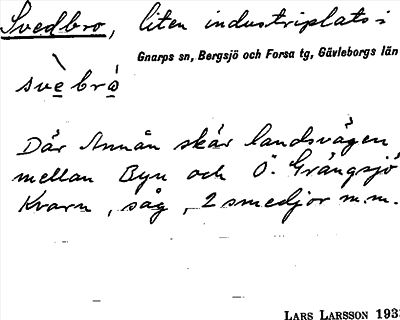 Svedbro, liten industriplats i
Gnarps sn, Bergsjö och Forsa tg, Gävleborgs län
svè brò
Där Annån skär landsvägen
mellan Byn och Ö. Grängsjö
Kvarn, såg, 2 smedjor m.m.
LARS LARSSON 193